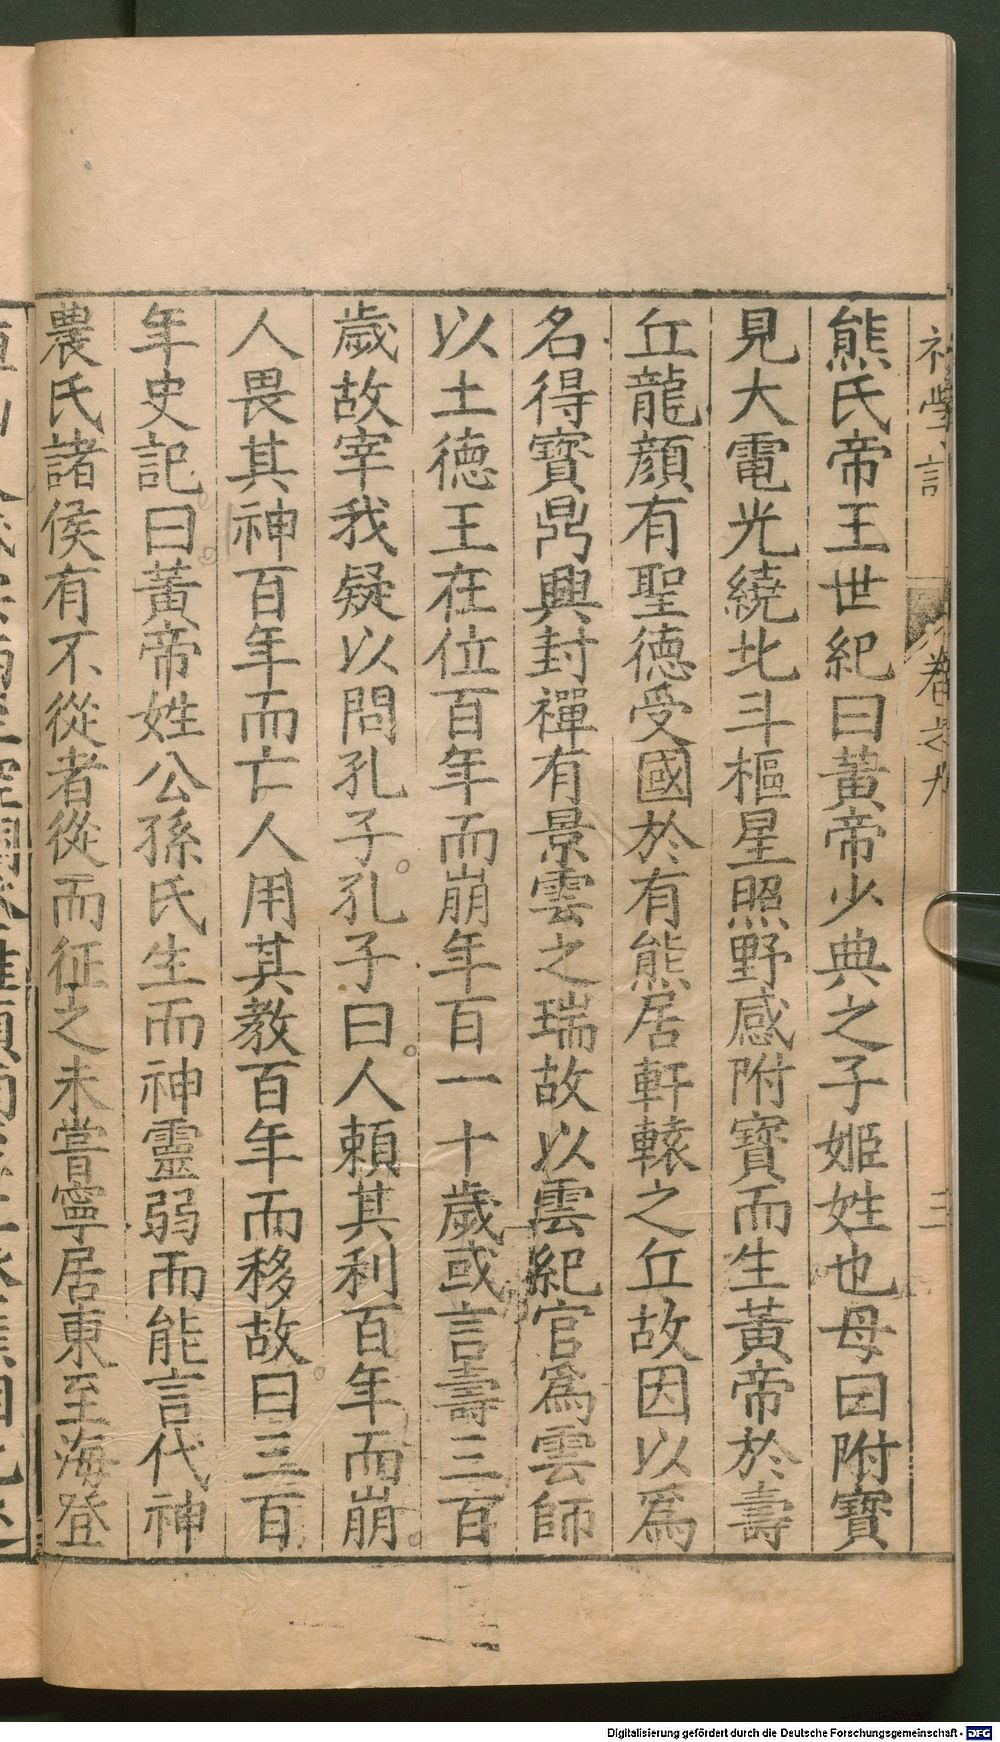 初學言
卷之九
三
熊氏帝王世紀曰黃帝少典之子姬姓也母曰附寶
見大電光繞北斗樞星照野感附寶而生黃帝於壽
丘龍顏有聖德受國於有熊居軒轅之丘故因以爲
名得寶鼎興封禪有景雲之瑞故以雲紀官爲雲師
以土德王在位百年而崩年百一十歲或言壽三百
歲故宰我疑以問孔子孔子曰人賴其利百年而崩
人畏其神百年而亡人用其教百年而移故曰三百
年史記曰黃帝姓公孫氏生而神靈弱而能言代神
農氏諸侯有不從者從而征之未嘗寧居東至海登
Digitalisierung gefördert durch die Deutsche Forschungsgemeinschaft - DFG